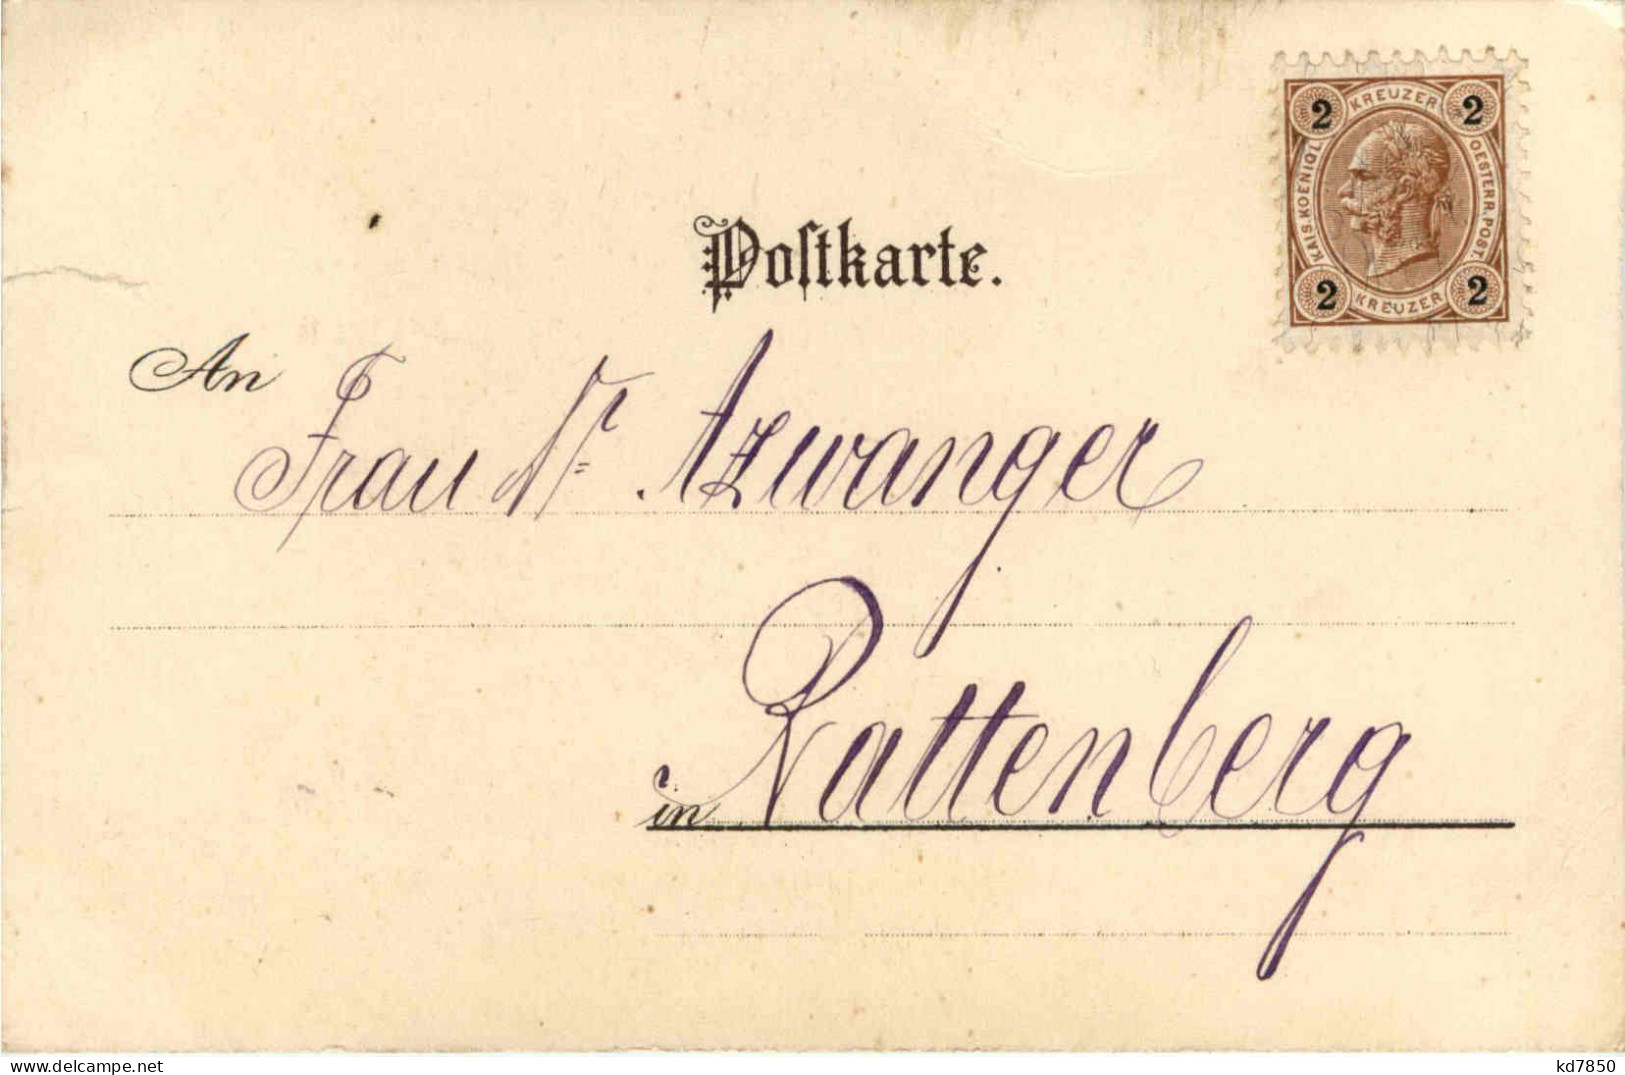 2 KREUZER 2
KAIS. KOENIGL. OESTERR. POST.
2 KREUZER 2
Postkarte.
An Frau Azwanger
in Rattenberg
www.delcampe.net
kd7850